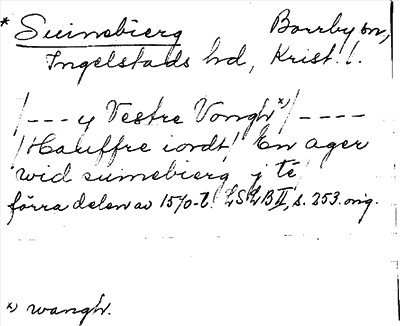 * Suinsbierg Borrby sn,
Ingelstads hd, Krist. l.
/--- y Vestre Vongh x)/----
/Hauffre iordt/ En ager
wid suinsbierg j te/
förra delen av 1570-t. LSLB II, s. 253. orig.
x) wangh.